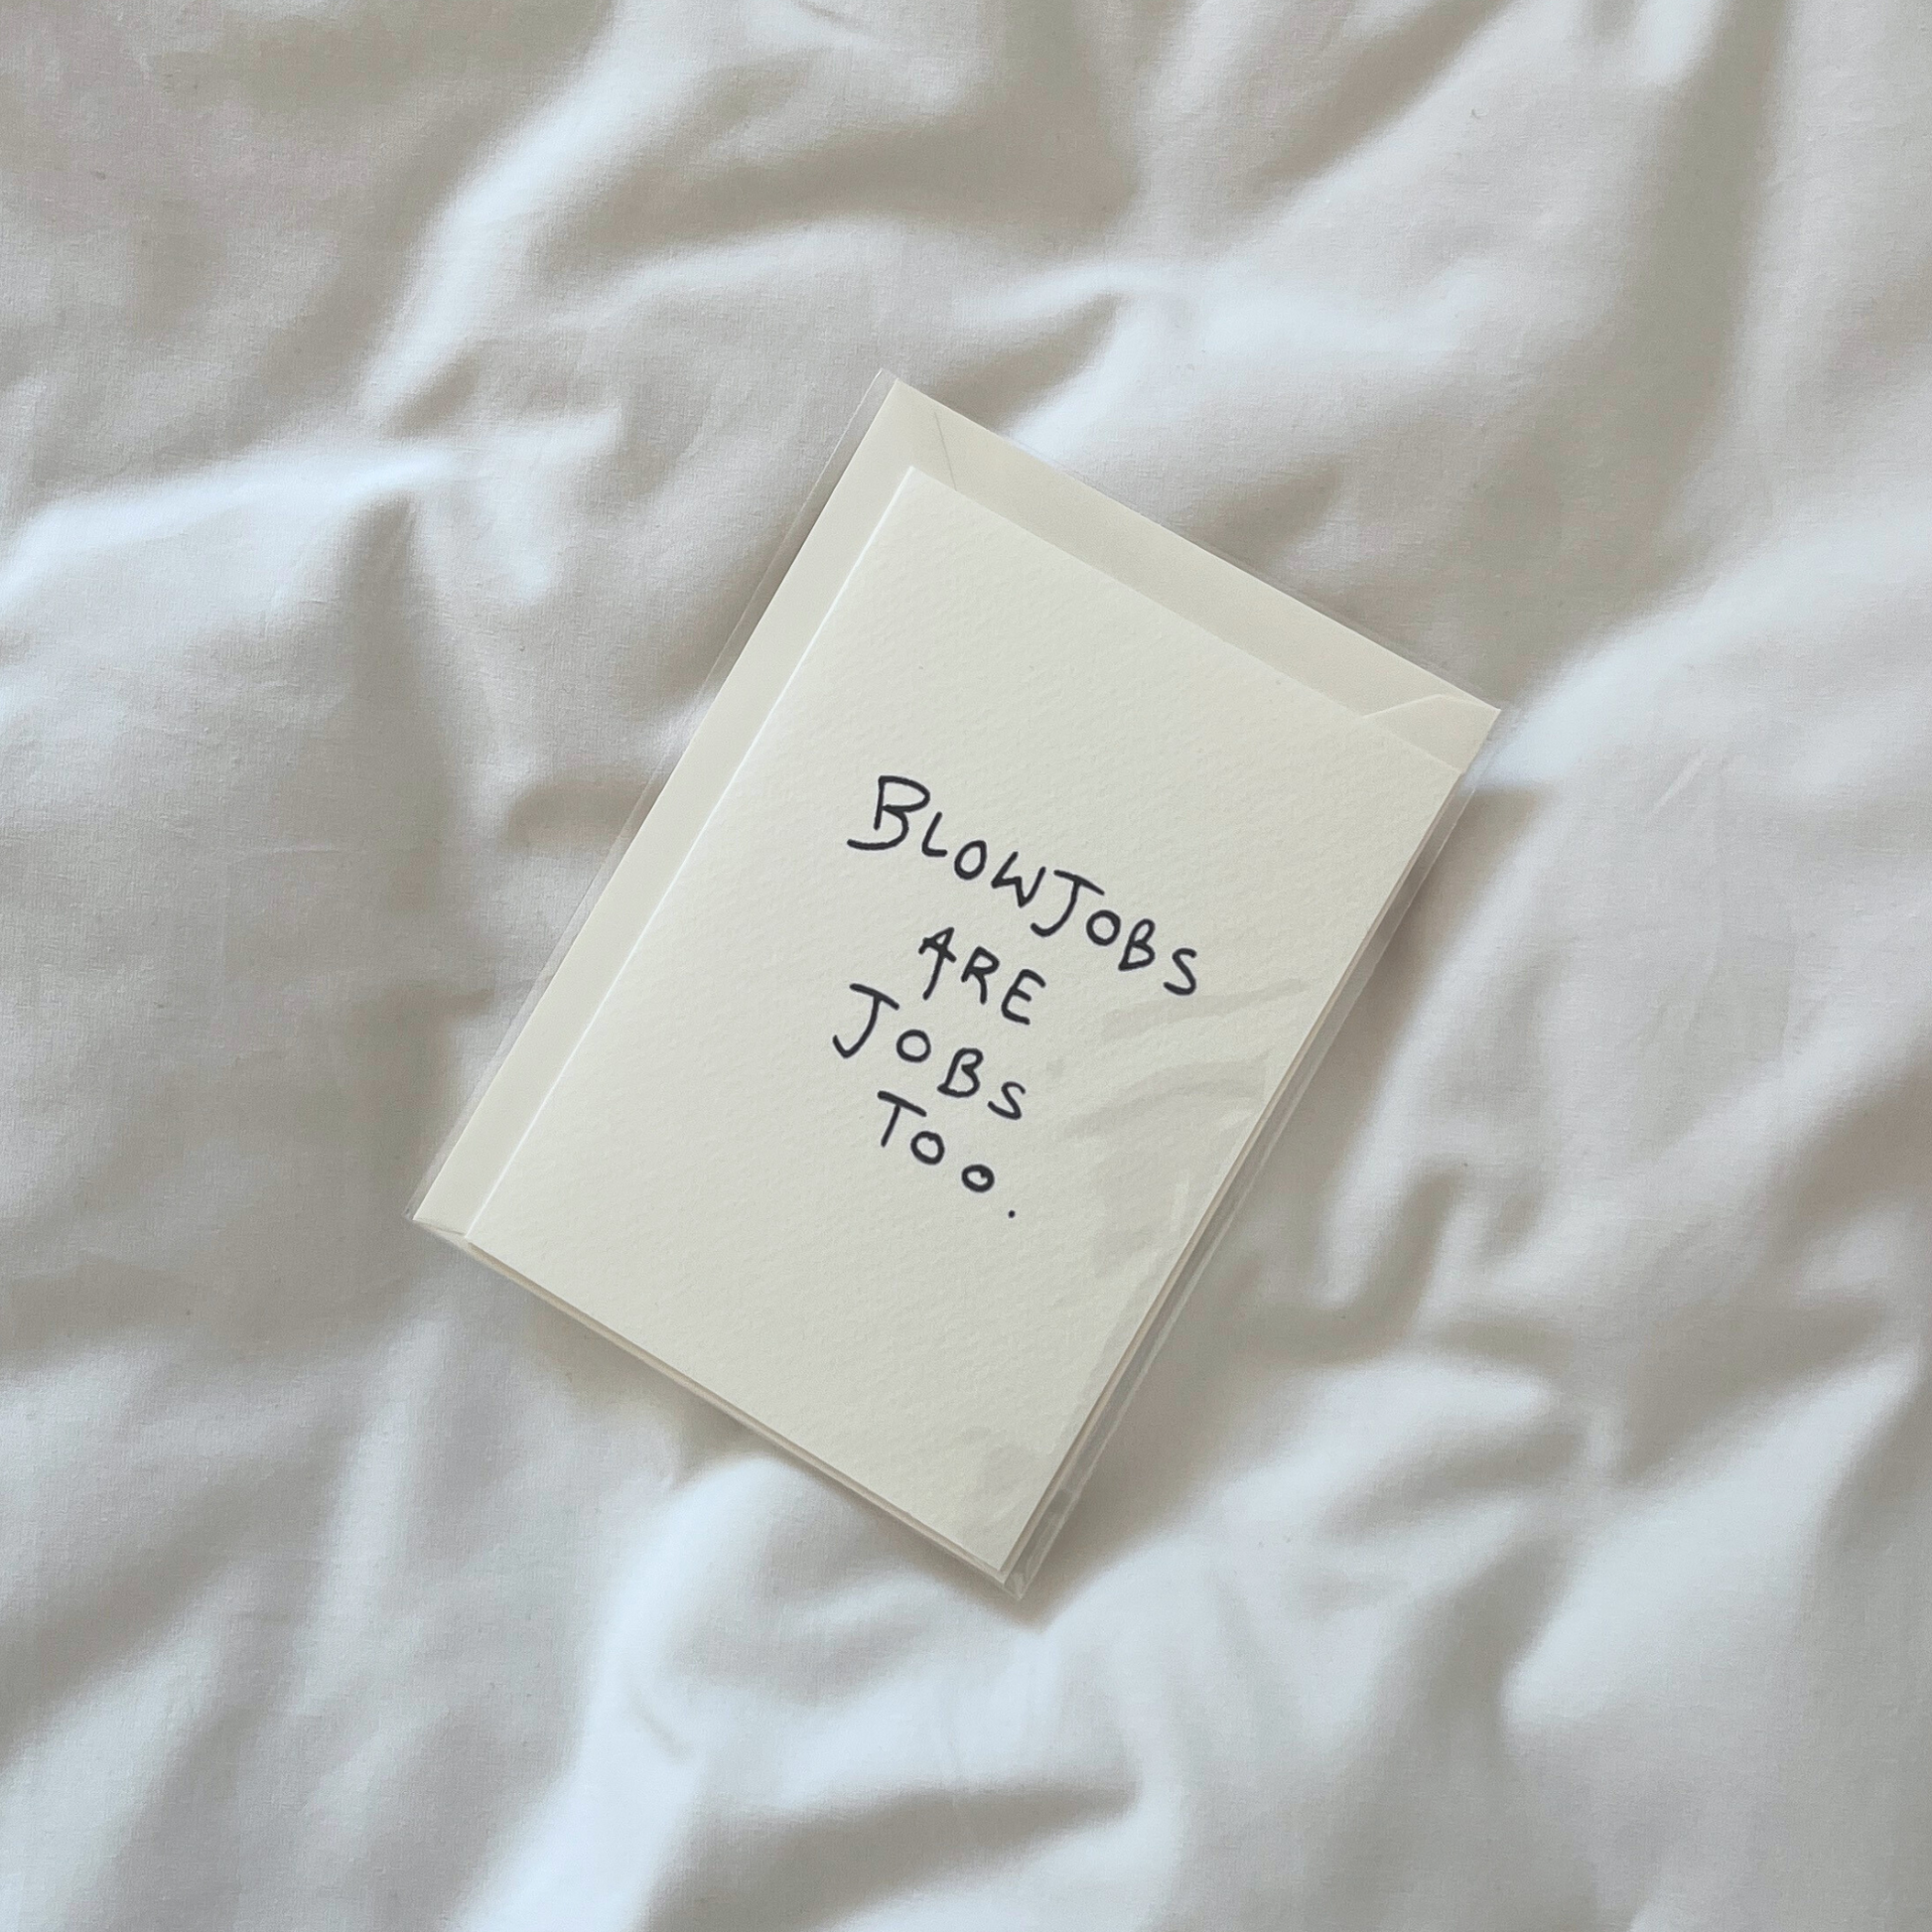 BLOWJOBS
ARE
JOBS
TOO.